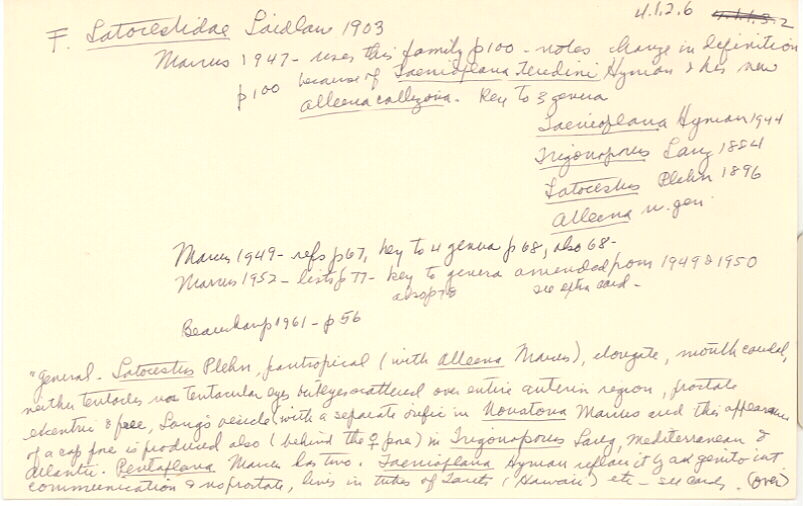 4.1.2.6 4.1.1.3.2
F. Latocestidae Laidlaw 1903
Marcus 1947 - uses this family p100 - notes change in definition
p100 because of Taenioplana teredini Hyman & his new
Alleena callizona. Key to 3 genera
Taenioplana Hyman 1944
Trigonoporus Lang 1884
Latocestus Plehn 1896
Alleena n. gen.
Marcus 1949 - refs p67, key to 4 genera p68, also 68-
Marcus 1952 - lists p77 - key to genera amended from 1949 & 1950
also p78 see extra card -
Beauchamp 1961 - p56
"general. Latocestus Plehn, pantropical (with Alleena Marcus), elongate, mouth caudal,
neither tentacles nor tentacular eyes but eyes scattered over entire anterior region, prostate
excentric & free, Lang's vesicle (with a separate orifice in Nonatona Marcus and this appearance
of a cop pore is produced also (behind the ♀ pore) in Trigonoporus Lang, mediterranean &
Atlantic. Pentaplana Marcus has two. Taenioplana Hyman it by a genito int
communication & no prostate, lives in tubes of Tarets (Hawaii) etc - see cards. (over)